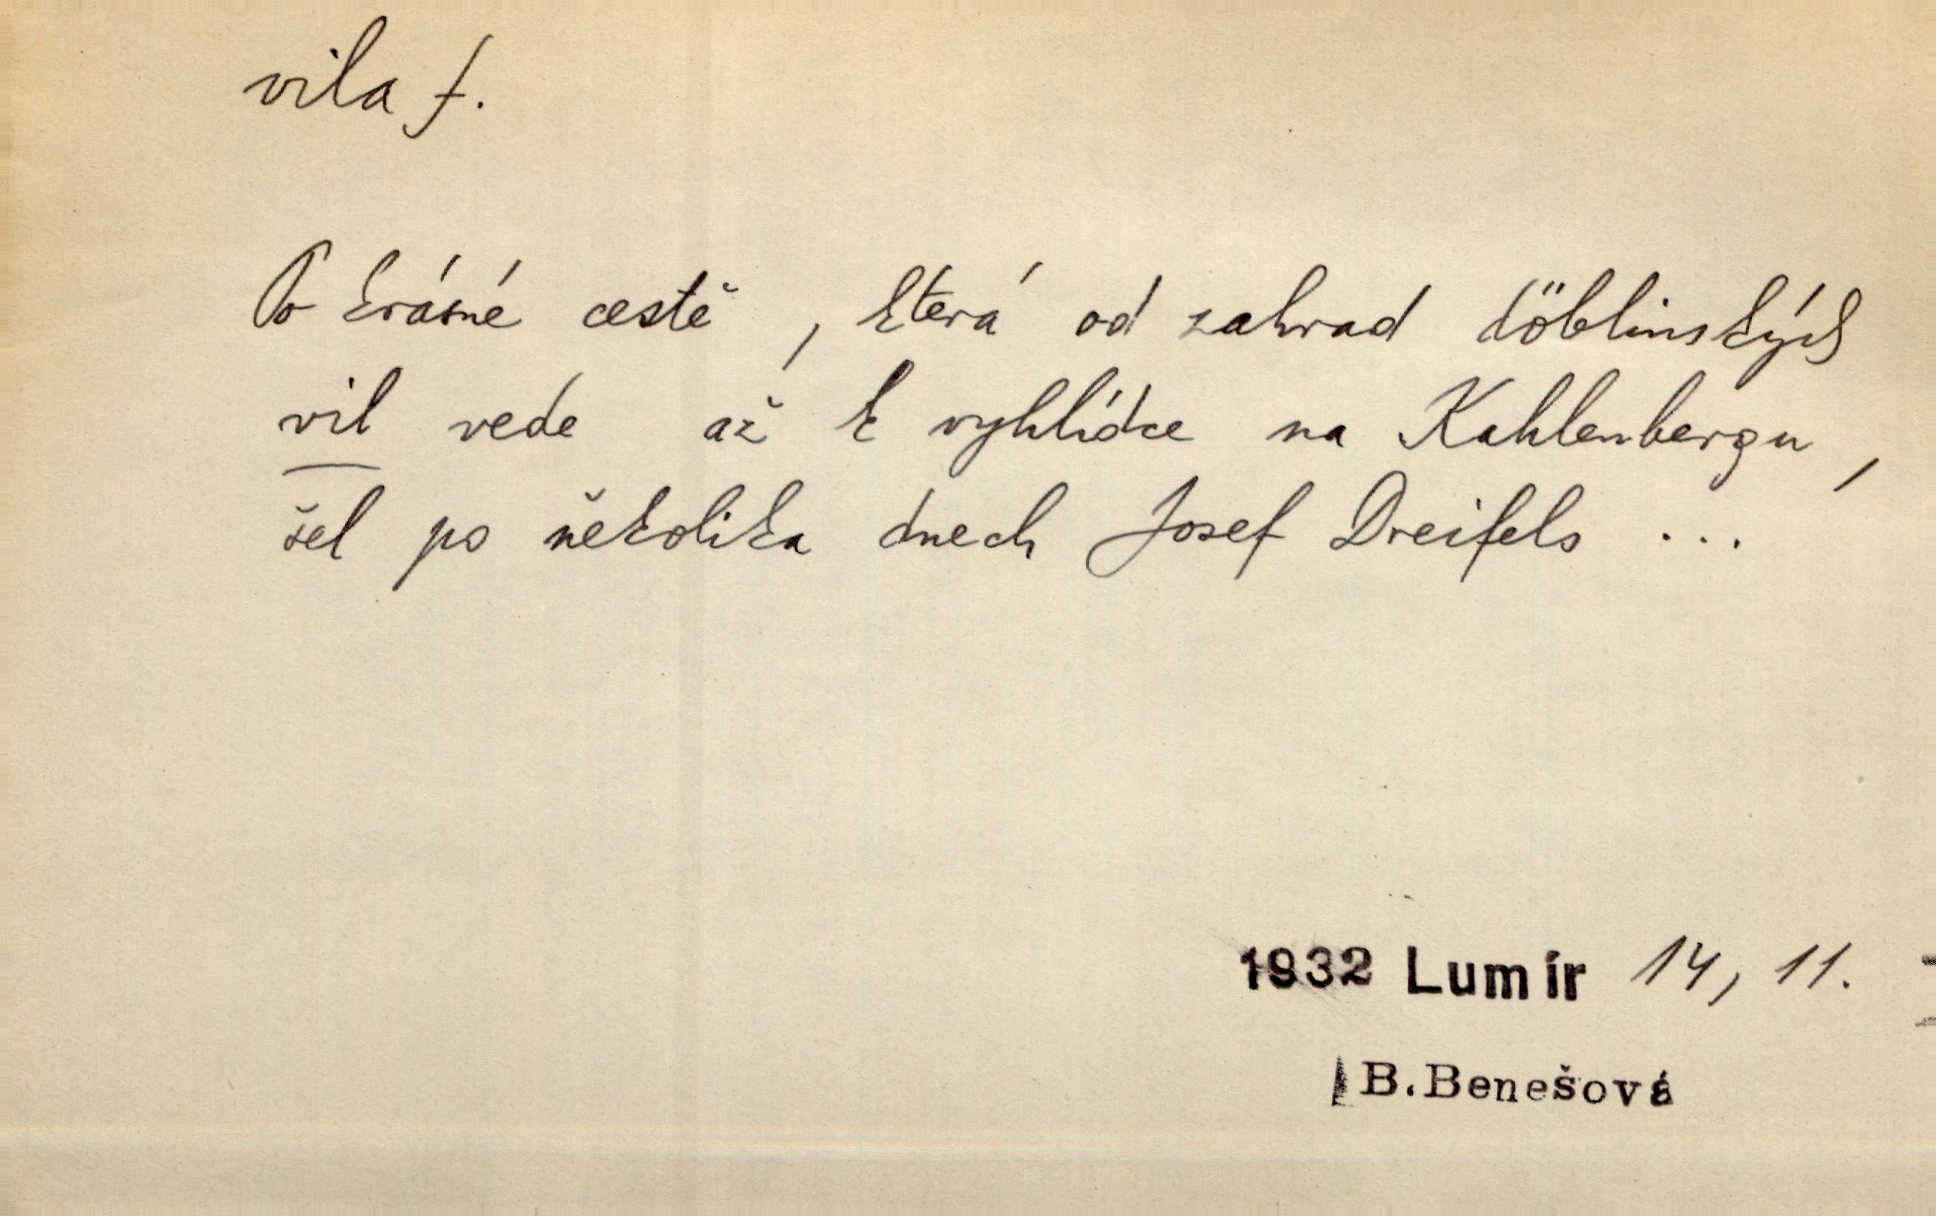 vila f.
Po krásné cestě, která od zahrad döblinských
vil vede až k vyhlídce na Kahlenbergu,
šel po několika dnech Josef Dreifels ...
1932 Lumír 14, 11.
B. Benešová